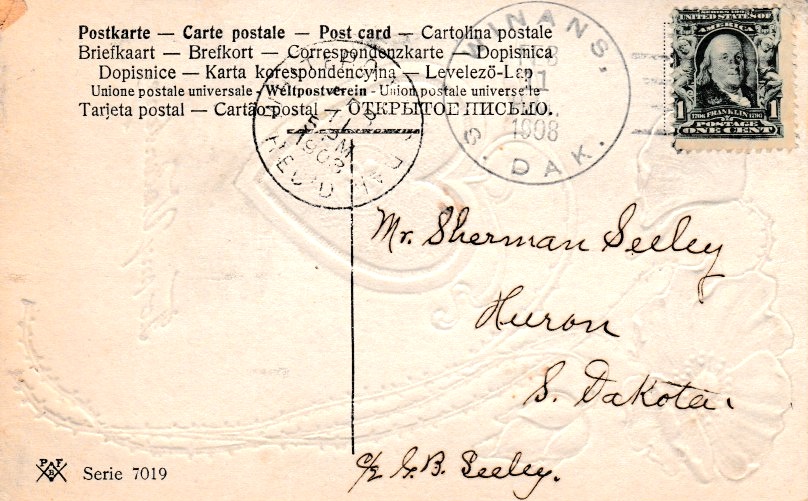 Postkarte — Carte postale — Post card — Cartolina postale
Briefkaart — Brefkort — Correspondenzkarte — Dopisnica
Dopisnice — Karta korespondencyjna — Levelező-Lap
Unione postale universale - Weltpostverein - Union postale universelle
Tarjeta postal — Cartão postal — ОТКРЫТОЕ ПИСЬМО.
WINANS,
1908
S. DAK.
SERIES 1902
UNITED STATES OF
AMERICA
1 1
1706 FRANKLIN 1790
POSTAGE
ONE CENT
FEB
11
5 PM
1908
REC'D
Mr. Sherman Seeley
Huron
S. Dakota.
c/o G. B. Seeley.
PFB
Serie 7019